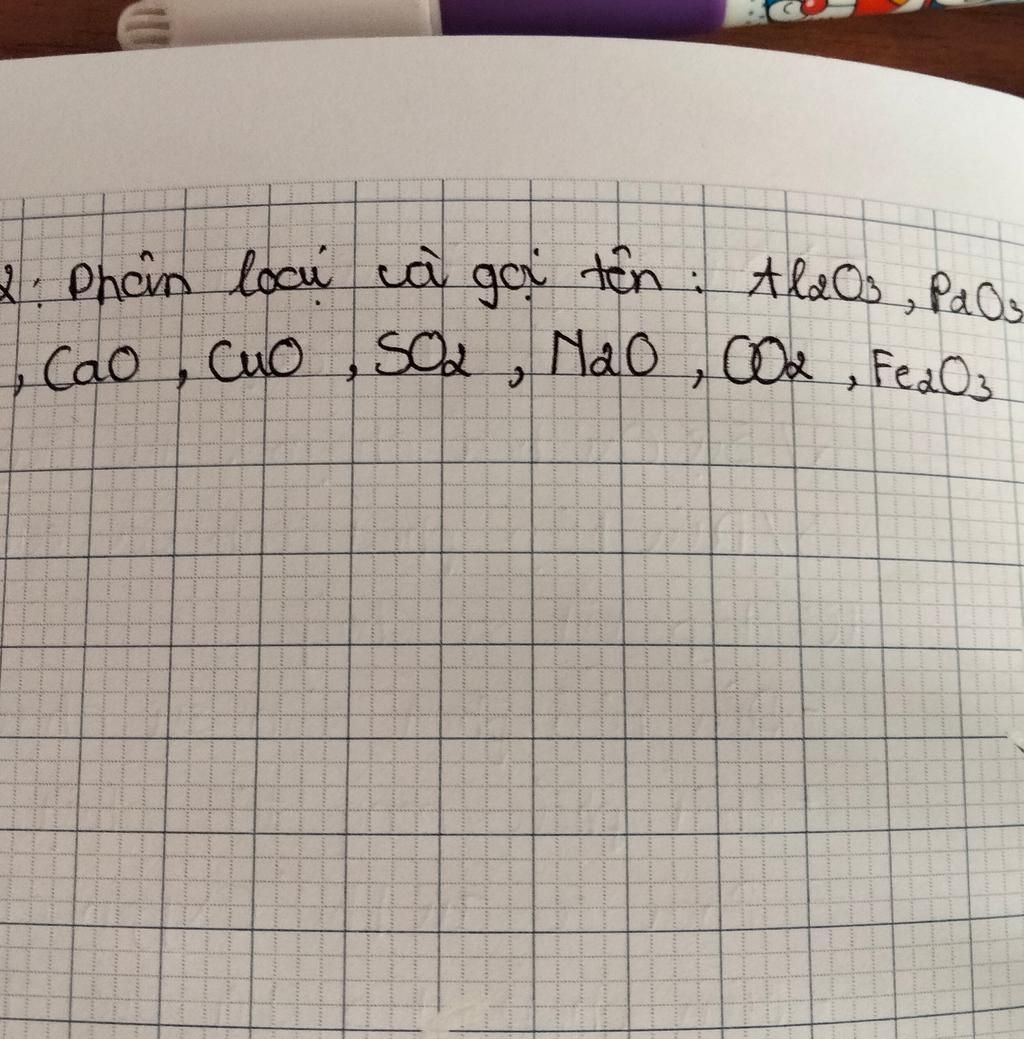 2: Phân loại và gọi tên: Al2O3, P2O3
, CaO, CuO, SO2, N2O, CO2, Fe2O3